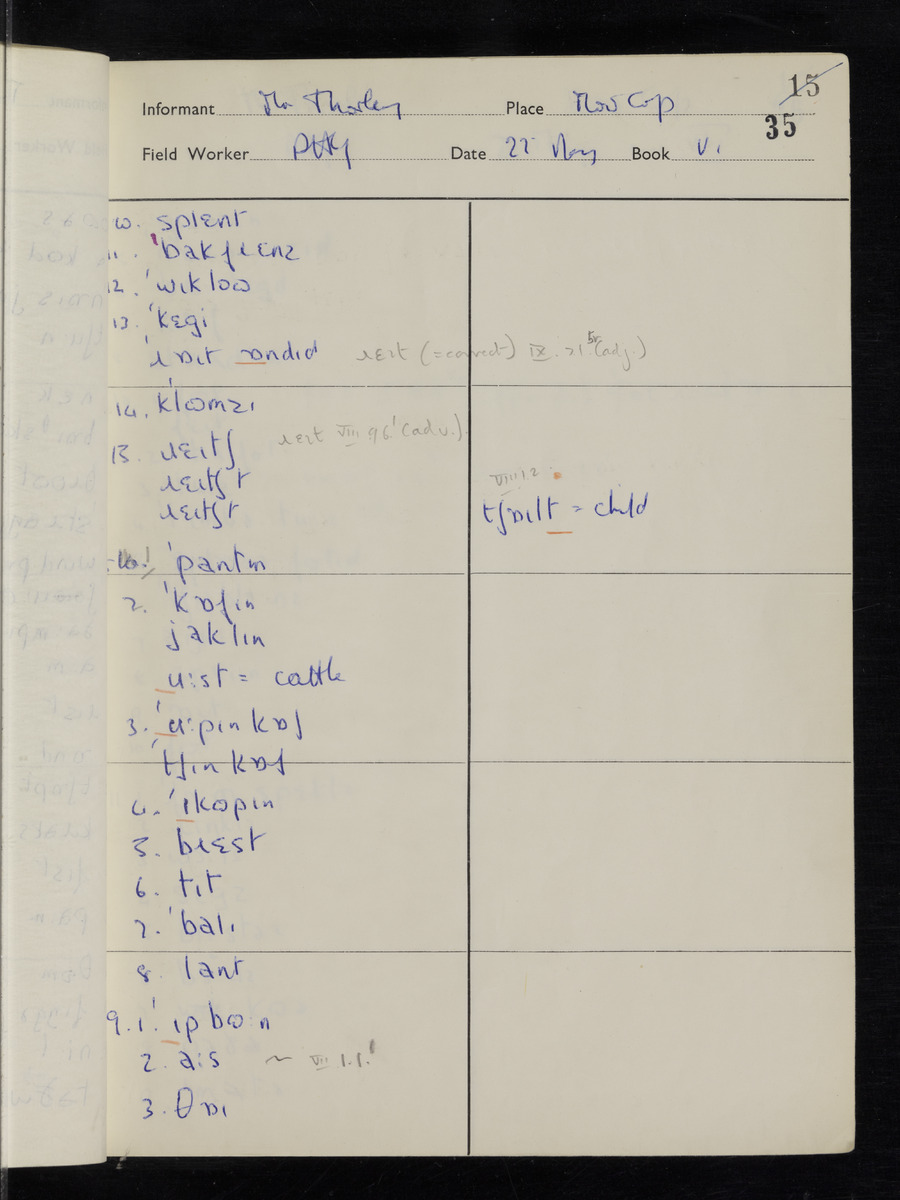 15
35
Informant Mr Thorley Place Mow Cop
Field Worker PHG Date 22 May Book VI
10. splɛnt
11. ˈbakɹɛnz
12. ˈwɪkloʊ
13. ˈkɛgi
ˈɹɒɪt ɒndɪd ɹɛɪt (=correct) IX. (adj.)
14. ˈklʊmzɪ
15. ɹɛɪtʃ ɹɛɪt VIII 9 6' (adv.)
ɹɛɪtʃt
ɹɛɪtʃt VIII 1.2
tʃɒɪlt = child
ˈpantɪn
2. ˈkɒfɪn
jaklɪn
u:st = cattle
3. ˈu:pɪn kɒf
ˈtʃɪn kɒf
4. ˈɪkʊpɪn
5. bɹɛst
6. tɪt
7. ˈbalɪ
8. lant
9.1. ˈɪpbʊ:n
2. a:s ~ VII 1.1.
3. θɒɪ